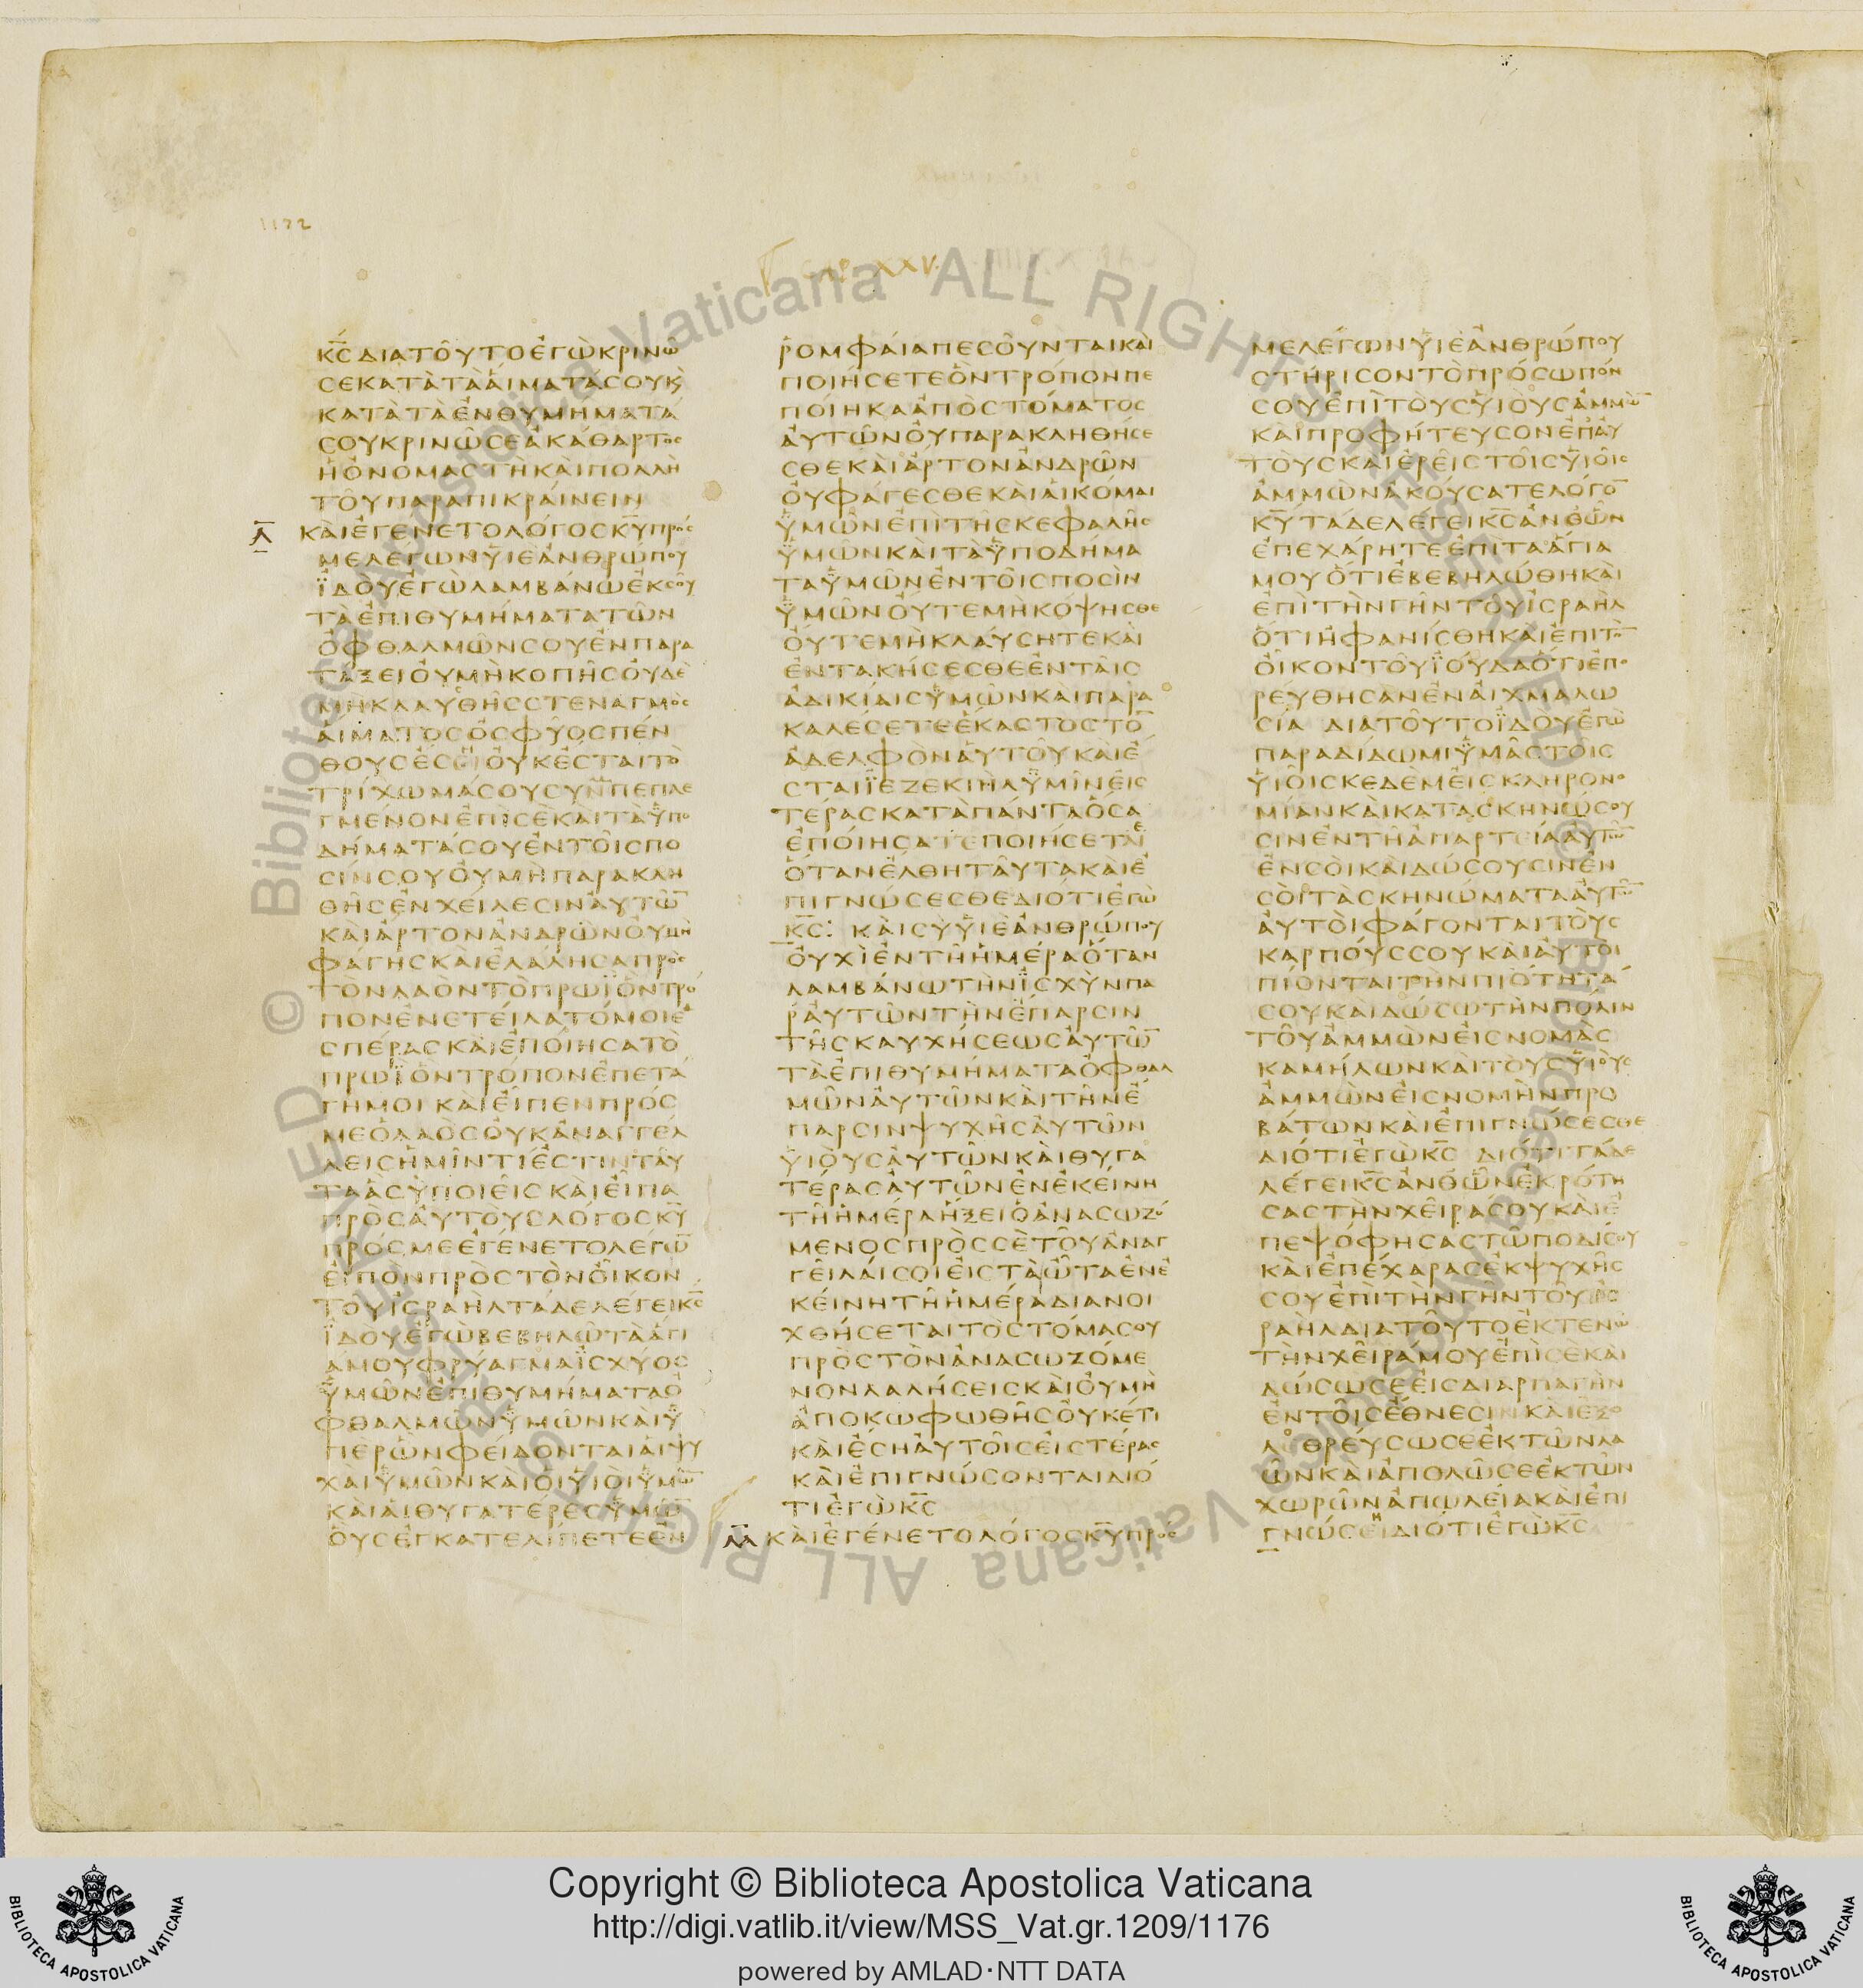 1172
CAP. XXV.
Κ̅Ϲ ΔΙΑΤΟΥΤΟΕΓΩΚΡΙΝΩ
ϹΕΚΑΤΑΤΑΑΙΜΑΤΑϹΟΥΚ
ΚΑΤΑΤΑΕΝΘΥΜΗΜΑΤΑ
ϹΟΥΚΡΙΝΩϹΕΑΚΑΘΑΡΤΟϹ
ΗΟΝΟΜΑϹΤΗΚΑΙΠΟΛΛΗ
ΤΟΥΠΑΡΑΠΙΚΡΑΙΝΕΙΝ
Λ̅ ΚΑΙΕΓΕΝΕΤΟΛΟΓΟϹΚ̅Υ̅ΠΡΟϹ
ΜΕΛΕΓΩΝΥΙΕΑΝΘΡΩΠΟΥ
ΪΔΟΥΕΓΩΛΑΜΒΑΝΩΕΚϹΟΥ
ΤΑΕΠΙΘΥΜΗΜΑΤΑΤΩΝ
ΟΦΘΑΛΜΩΝϹΟΥΕΝΠΑΡΑ
ΤΑΞΕΙΟΥΜΗΚΟΠΗϹΟΥΔΕ
ΜΗΚΛΑΥϹΘΗϹϹΤΕΝΑΓΜΟϹ
ΑΙΜΑΤΟϹΟϹΦΥΟϹΠΕΝ
ΘΟΥϹΕϹΤΙΟΥΚΕϹΤΑΙΤΟ
ΤΡΙΧΩΜΑϹΟΥϹΥΝΠΕΠΛΕ
ΓΜΕΝΟΝΕΠΙϹΕΚΑΙΤΑΥΠΟ
ΔΗΜΑΤΑϹΟΥΕΝΤΟΙϹΠΟ
ϹΙΝϹΟΥΟΥΜΗΠΑΡΑΚΛΗ
ΘΗϹΕΝΧΕΙΛΕϹΙΝΑΥΤΩ̅
ΚΑΙΑΡΤΟΝΑΝΔΡΩΝΟΥΜΗ
ΦΑΓΗϹΚΑΙΕΛΑΛΗϹΑΠΡΟϹ
ΤΟΝΛΑΟΝΤΟΠΡΩΪΟΝΤΡΟ
ΠΟΝΕΝΕΤΕΙΛΑΤΟΜΟΙΕ
ϹΠΕΡΑϹΚΑΙΕΠΟΙΗϹΑΤΟ
ΠΡΩΪΟΝΤΡΟΠΟΝΕΠΕΤΑ
ΓΗΜΟΙ ΚΑΙΕΙΠΕΝΠΡΟϹ
ΜΕΟΛΑΟϹΟΥΚΑΝΑΓΓΕΛ
ΛΕΙϹΗΜΙΝΤΙΕϹΤΙΝΤΑΥ
ΤΑΑϹΥΠΟΙΕΙϹΚΑΙΕΙΠΑ
ΠΡΟϹΑΥΤΟΥϹΛΟΓΟϹΚ̅Υ̅
ΠΡΟϹΜΕΕΓΕΝΕΤΟΛΕΓΩ̅
ΕΙΠΟΝΠΡΟϹΤΟΝΟΙΚΟΝ
ΤΟΥΙϹΡΑΗΛΤΑΔΕΛΕΓΕΙΚ̅Ϲ̅
ΪΔΟΥΕΓΩΒΕΒΗΛΩΤΑΑΓΙ
ΑΜΟΥΦΡΥΑΓΜΑΪϹΧΥΟϹ
ΥΜΩΝΕΠΙΘΥΜΗΜΑΤΑΟ
ΦΘΑΛΜΩΝΥΜΩΝΚΑΙΥ
ΠΕΡΩΝΦΕΙΔΟΝΤΑΙΑΙΨΥ
ΧΑΙΥΜΩΝΚΑΙΟΙΥΙΟΙΥΜΩ̅
ΚΑΙΑΙΘΥΓΑΤΕΡΕϹΥΜΩ̅
ΟΥϹΕΓΚΑΤΕΛΙΠΕΤΕΕΝ
ΡΟΜΦΑΙΑΠΕϹΟΥΝΤΑΙΚΑΙ
ΠΟΙΗϹΕΤΕΟΝΤΡΟΠΟΝΠΕ
ΠΟΙΗΚΑΑΠΟϹΤΟΜΑΤΟϹ
ΑΥΤΩΝΟΥΠΑΡΑΚΛΗΘΗϹΕ
ϹΘΕΚΑΙΑΡΤΟΝΑΝΔΡΩΝ
ΟΥΦΑΓΕϹΘΕΚΑΙΑΙΚΟΜΑΙ
ΥΜΩΝΕΠΙΤΗϹΚΕΦΑΛΗϹ
ΥΜΩΝΚΑΙΤΑΥΠΟΔΗΜΑ
ΤΑΥΜΩΝΕΝΤΟΙϹΠΟϹΙΝ
ΥΜΩΝΟΥΤΕΜΗΚΟΨΗϹΘΕ
ΟΥΤΕΜΗΚΛΑΥϹΗΤΕΚΑΙ
ΕΝΤΑΚΗϹΕϹΘΕΕΝΤΑΙϹ
ΑΔΙΚΙΑΙϹΥΜΩΝΚΑΙΠΑΡΑ
ΚΑΛΕϹΕΤΕΕΚΑϹΤΟϹΤΟ̅
ΑΔΕΛΦΟΝΑΥΤΟΥΚΑΙΕ
ϹΤΑΙΪΕΖΕΚΙΗΛΥΜΙΝΕΙϹ
ΤΕΡΑϹΚΑΤΑΠΑΝΤΑΟϹΑ
ΕΠΟΙΗϹΑΤΕΠΟΙΗϹΕΤΑΙ
ΟΤΑΝΕΛΘΗΤΑΥΤΑΚΑΙΕ
ΠΙΓΝΩϹΕϹΘΕΔΙΟΤΙΕΓΩ
Κ̅Ϲ̅: ΚΑΙϹΥΥΙΕΑΝΘΡΩΠΟΥ
ΟΥΧΙΕΝΤΗΗΜΕΡΑΟΤΑΝ
ΛΑΜΒΑΝΩΤΗΝΪϹΧΥΝΠΑ
ΡΑΥΤΩΝΤΗΝΕΠΑΡϹΙΝ
ΤΗϹΚΑΥΧΗϹΕΩϹΑΥΤΩ̅
ΤΑΕΠΙΘΥΜΗΜΑΤΑΟΦΘΑΛ
ΜΩΝΑΥΤΩΝΚΑΙΤΗΝΕ
ΠΑΡϹΙΝΨΥΧΗϹΑΥΤΩΝ
ΥΙΟΥϹΑΥΤΩΝΚΑΙΘΥΓΑ
ΤΕΡΑϹΑΥΤΩΝΕΝΕΚΕΙΝΗ
ΤΗΗΜΕΡΑΗΞΕΙΟΑΝΑϹΩΖΟ
ΜΕΝΟϹΠΡΟϹϹΕΤΟΥΑΝΑΓ
ΓΕΙΛΑΙϹΟΙΕΙϹΤΑΩΤΑΕΝΕ
ΚΕΙΝΗΤΗΗΜΕΡΑΔΙΑΝΟΙ
ΧΘΗϹΕΤΑΙΤΟϹΤΟΜΑϹΟΥ
ΠΡΟϹΤΟΝΑΝΑϹΩΖΟΜΕ
ΝΟΝΛΑΛΗϹΕΙϹΚΑΙΟΥΜΗ
ΑΠΟΚΩΦΩΘΗϹΟΥΚΕΤΙ
ΚΑΙΕϹΗΑΥΤΟΙϹΕΙϹΤΕΡΑϹ
ΚΑΙΕΠΙΓΝΩϹΟΝΤΑΙΔΙΟ
ΤΙΕΓΩΚ̅Ϲ̅
Λ̅Α̅ ΚΑΙΕΓΕΝΕΤΟΛΟΓΟϹΚ̅Υ̅ΠΡΟϹ
ΜΕΛΕΓΩΝΥΙΕΑΝΘΡΩΠΟΥ
ϹΤΗΡΙϹΟΝΤΟΠΡΟϹΩΠΟΝ
ϹΟΥΕΠΙΤΟΥϹΥΙΟΥϹΑΜΜΩ̅
ΚΑΙΠΡΟΦΗΤΕΥϹΟΝΕΠΑΥ
ΤΟΥϹΚΑΙΕΡΕΙϹΤΟΙϹΥΙΟΙϹ
ΑΜΜΩΝΑΚΟΥϹΑΤΕΛΟΓΟ̅
Κ̅Υ̅ΤΑΔΕΛΕΓΕΙΚ̅Ϲ̅ΑΝΘΩΝ
ΕΠΕΧΑΡΗΤΕΕΠΙΤΑΑΓΙΑ
ΜΟΥΟΤΙΕΒΕΒΗΛΩΘΗΚΑΙ
ΕΠΙΤΗΝΓΗΝΤΟΥΙϹΡΑΗΛ
ΟΤΙΗΦΑΝΙϹΘΗΚΑΙΕΠΙΤΟ̅
ΟΙΚΟΝΤΟΥΪΟΥΔΑΟΤΙΕΠΟ
ΡΕΥΘΗϹΑΝΕΝΑΙΧΜΑΛΩ
ϹΙΑ ΔΙΑΤΟΥΤΟΪΔΟΥΕΓΩ
ΠΑΡΑΔΙΔΩΜΙΥΜΑϹΤΟΙϹ
ΥΙΟΙϹΚΕΔΕΜΕΙϹΚΛΗΡΟΝΟ
ΜΙΑΝΚΑΙΚΑΤΑϹΚΗΝΩϹΟΥ
ϹΙΝΕΝΤΗΑΠΑΡΤΕΙΑΑΥΤΩ̅
ΕΝϹΟΙΚΑΙΔΩϹΟΥϹΙΝΕΝ
ϹΟΙΤΑϹΚΗΝΩΜΑΤΑΑΥΤΩ̅
ΑΥΤΟΙΦΑΓΟΝΤΑΙΤΟΥϹ
ΚΑΡΠΟΥϹϹΟΥΚΑΙΑΥΤΟΙ
ΠΙΟΝΤΑΙΤΗΝΠΙΟΤΗΤΑ
ϹΟΥΚΑΙΔΩϹΩΤΗΝΠΟΛΙΝ
ΤΟΥΑΜΜΩΝΕΙϹΝΟΜΑϹ
ΚΑΜΗΛΩΝΚΑΙΤΟΥϹΥΙΟΥϹ
ΑΜΜΩΝΕΙϹΝΟΜΗΝΠΡΟ
ΒΑΤΩΝΚΑΙΕΠΙΓΝΩϹΕϹΘΕ
ΔΙΟΤΙΕΓΩΚ̅Ϲ̅ ΔΙΟΤΙΤΑΔΕ
ΛΕΓΕΙΚ̅Ϲ̅ΑΝΘΩΝΕΚΡΟΤΗ
ϹΑϹΤΗΝΧΕΙΡΑϹΟΥΚΑΙΕ
ΠΕΨΟΦΗϹΑϹΤΩΠΟΔΙϹΟΥ
ΚΑΙΕΠΕΧΑΡΑϹΕΚΨΥΧΗϹ
ϹΟΥΕΠΙΤΗΝΓΗΝΤΟΥΙϹ
ΡΑΗΛΔΙΑΤΟΥΤΟΕΚΤΕΝΩ
ΤΗΝΧΕΙΡΑΜΟΥΕΠΙϹΕΚΑΙ
ΔΩϹΩϹΕΕΙϹΔΙΑΡΠΑΓΗΝ
ΕΝΤΟΙϹΕΘΝΕϹΙΝΚΑΙΕΞΟ
ΛΟΘΡΕΥϹΩϹΕΕΚΤΩΝΛΑ
ΩΝΚΑΙΑΠΟΛΩϹΕΕΚΤΩΝ
ΧΩΡΩΝΑΠΩΛΕΙΑΚΑΙΕΠΙ
ΓΝΩϹΕΙΔΙΟΤΙΕΓΩΚ̅Ϲ̅
© Biblioteca Apostolica Vaticana ALL RIGHTS RESERVED
Copyright © Biblioteca Apostolica Vaticana
http://digi.vatlib.it/view/MSS_Vat.gr.1209/1176
powered by AMLAD·NTT DATA
BIBLIOTECA APOSTOLICA VATICANA
BIBLIOTECA APOSTOLICA VATICANA